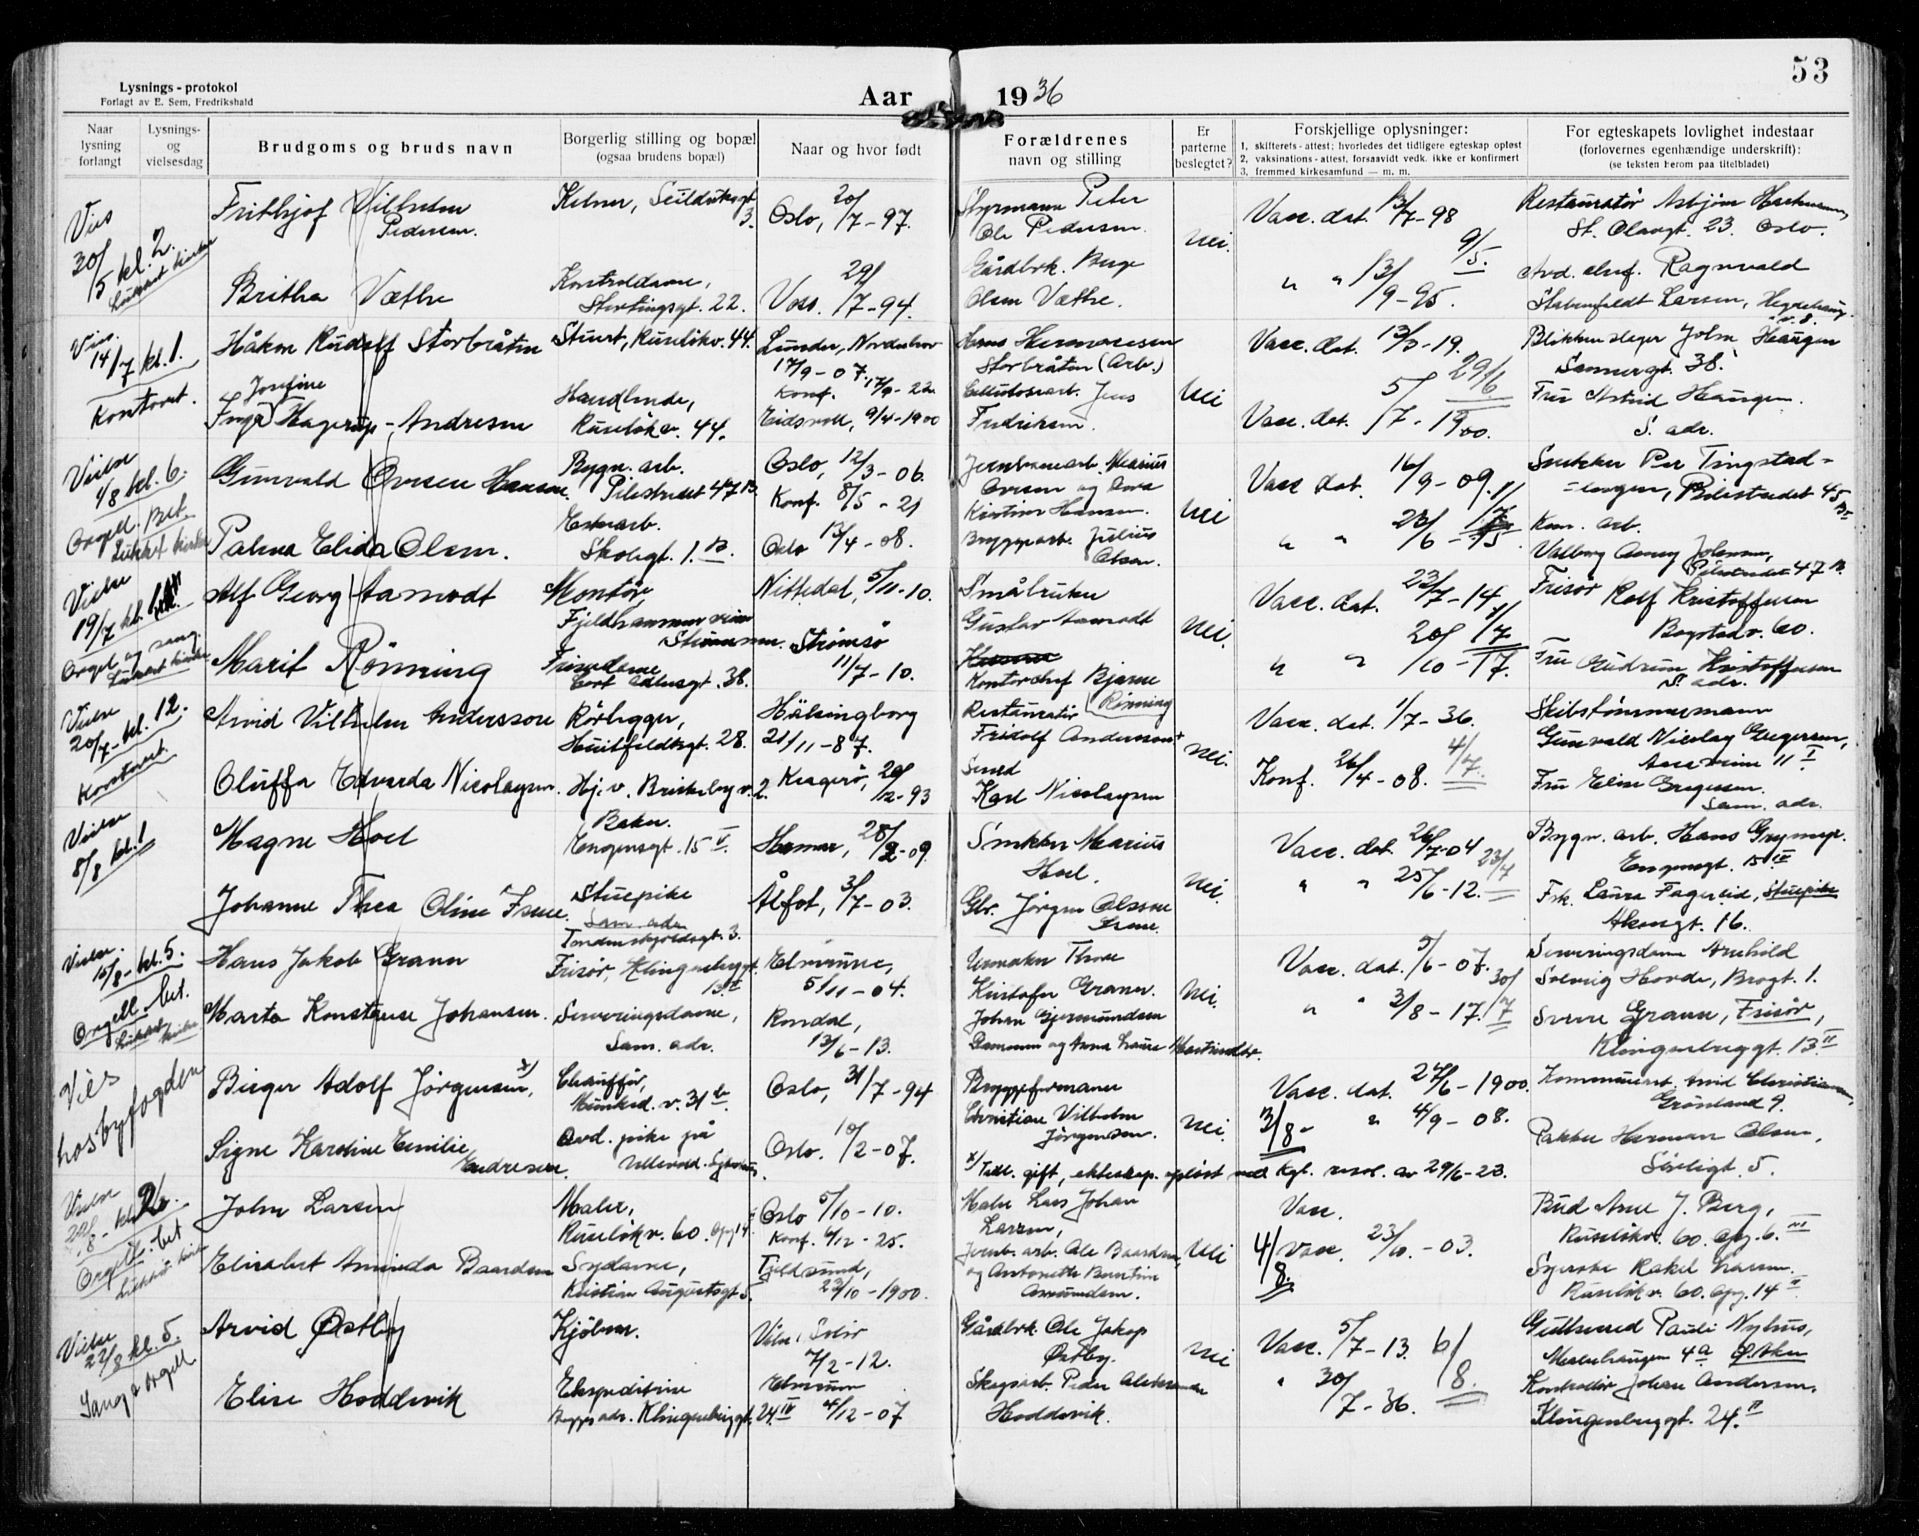 53
Lysnings-protokol
Forlagt av E. Sem, Fredrikshald
Aar 1936
Naar lysning forlangt
Lysnings- og vielsesdag
Brudgoms og bruds navn
Borgerlig stilling og bopæl
(ogsaa brudens bopæl)
Naar og hvor født
Forældrenes
navn og stilling
Er parterne beslegtet?
Forskjellige oplysninger:
1. skifterets-attest; hvorledes det tidligere egteskap opløst
2. vaksinations-attest, forsaavidt vedk. ikke er konfirmert
3. fremmed kirkesamfund — m. m.
For egteskapets lovlighet indestaar
(forlovernes egenhændige underskrift):
(se teksten herom paa titelbladet)
Vies
30/5 kl. 2.
Lukket kirke
Frithjof Vilhelm Pedersen.
Kelner, Seilduksgt. 3.
Oslo, 20/7-97.
Styrmann Peter
Ole Pedersen.
nei.
Vacc. dat. 13/7-98
9/5.
Restauratør Asbjørn
St. Olavsgt. 23. Oslo.
Britha Væthe
Kontroldame,
Stortingsgt. 22.
Voss. 29/7-94.
Gårdbrk. Berge
Olsen Væthe.
" " 13/9-95.
Avd. chef. Ragnvald
Larsen,
Vies.
14/7 kl. 1.
Kontoret.
Håkon Rudolf Storbråten
Stuert, Ruseløkv. 44.
Lunder, Norderhov
17/9-07.
Konf. 17/9-22
Hans Hermansen
Storbråten (Arb.)
nei
Vacc. dat. 13/5-19.
29/6
Blikkenslager John Haugen
Sannergt. 38.
Josefine
Inga Hagerup-Andresen
Handlende,
Ruseløkv. 44.
Eidsvoll, 9/4-1900
Cellulosearb. Jens
Fredriksen.
Vacc. dat. 5/7-1900.
Fru Astrid Haugen.
S. adr.
Vielse
1/8 kl. 6.
Orgel. Bet.
Lukket kirke
Gunvald Ovesen Hansen.
Bygn. arb.
Pilestredet 47 B
Oslo, 12/3-06.
Konf. 8/5-21
Jernbanearb. Marius
Ovesen og
Kristine Hansen.
nei
Vacc dat. 16/9-09.
Snekker Per Tingstad-
Pilestredet 45
Palma Elida Olsen.
Skolegt. 1. B.
Oslo 13/4-08.
Bryggearb. Julius
Olsen.
" " 23/6-
Kom. arb.
Valborg Johansen,
Pilestredet 47 B.
Vielse
19/7 kl.
Orgel og sang.
Lukket kirke
Alf Georg Aamodt
Montør
Fjeldhammerveien
Strømmen.
Nittedal, 5/11-10.
Småbruker
Gustav Aamodt
nei.
Vacc. dat. 23/7-14
1/7
Frisør Rolf Kristoffersen
Bogstadv. 60.
Marit Rönning
Frisørdame
Cort Adlersgt. 38.
Strømsø
11/7-10.
Kontorchef Bjarne
Rönning
" " 20/10-17.
Fru Gudrun Kristoffersen
S. adr.
Vielse
20/7-kl. 12.
Kontoret.
Arvid Vilhelm Andersson
Rörlegger,
Huitfeldtsgt. 28.
Hälsingborg
21/11-87.
Restauratör
Fridolf Andersson
nei.
Vacc. dat. 1/7-36.
Skibstømmermann
Gunvald Nicolay Gregersen,
11 I
Oluffa Edvarda Nicolaysen.
Hj. v. Briskebyv. 2.
Kragerø, 20/12-93
Smed
Karl Nicolaysen
Konf. 26/4-08.
4/7.
Fru Elise Gregersen.
Sam. adr.
Vielse
8/8 kl. 1
Magne Hoel
Baker.
15 V.
Hamar, 28/2-09.
Snekker Marius
Hoel.
nei.
Vacc. dat. 26/7-04
23/7
Bygn. arb. Hans
15 IV
Johanne Thea Oline
Stuepike
Sam. adr.
Ålfot, 3/7-03.
Gbr. Jörgen Olsson
" " 25/6-12.
Frk. Laura Fagerlid, Stuepike
Akersgt. 16.
Vielse.
15/8-kl. 5.
Orgell-bet.
Lukket kirke
Hans Jakob Grann
Tordenskjoldsgt. 3.
Frisør, Klingenberggt.
13. II
Elverum,
5/11-04.
Urmaker Thore
Kristofer Grann.
nei.
Vacc. dat. 5/6-07.
30/7
Serveringsdame Arnhild
Solveig Hovde, Brogt. 1.
Marta Konstanse Johansen.
Serveringsdame,
Sam. adr.
Romdal,
13/6-13.
Johan Gjermundsen
" " 3/8-17.
Sverre Grann, Frisør,
Klingenberggt. 13 II
Vies
hos byfogden
Birger Adolf Jørgensen, x)
Chauffør,
Munked. v. 31 b.
Oslo, 31/7-94
Bryggeformann
Christian Vilhelm
Jörgensen.
nei.
Vacc. dat. 27/6-1900
Arvid Christiansen,
Grønland 9.
Signe Karoline Emilie
Endresen.
Avd. pike på
Ullevål. Sykehus.
Oslo. 10/2-07.
13/8- " 4/9-08.
Pakker Herman Olsen,
Sörligt. 5.
x) Tidl. gift, ekteskap. opløst ved Kgl. resol. av 29/6-23.
Vielse
22/8-kl.
Orgell.-bet
Lukket kirke
John Larsen
Maler,
Ruseløkv. 60. opg 14
Oslo 5/10-10.
Konf. 6/12-25.
Maler Lars Johan
Larsen,
nei
Vacc.
Bud Arne J. Berg,
Ruseløkv. 60. opg. 6. III
Elisabet Aminda Baardsen
Sydame,
Kristian Augustsgt. 5.
Tjeldsund,
23/10-1900.
Jernb. arb. Ole Baardsen,
og Antonette Berntine
Amundsen.
4/8. Vacc. 23/10.-03.
Syerske Rakel Larsen.
Ruseløkv. 60. Opg. 14 II
Vielse
22/8 kl. 5.
Sang & orgell
Arvid Østby
Kjøbm.
Våler, Solør
7/2-12.
Gårdbrk Ole Jakop
Østby.
nei
Vacc. 5/7-13.
6/8.
Gullsmed Pauli Nyhus,
4 a Ø. Aker
Elise Hoddevik
Ekspeditrise
Begges adr. Klingenberggt. 24. IV
Elverum
4/12-07
Skogsarb. Peder Aleksander
Hoddevik.
" 30/7-36.
Kontrollør Johan Andersen.
Klingenberggt. 24. II